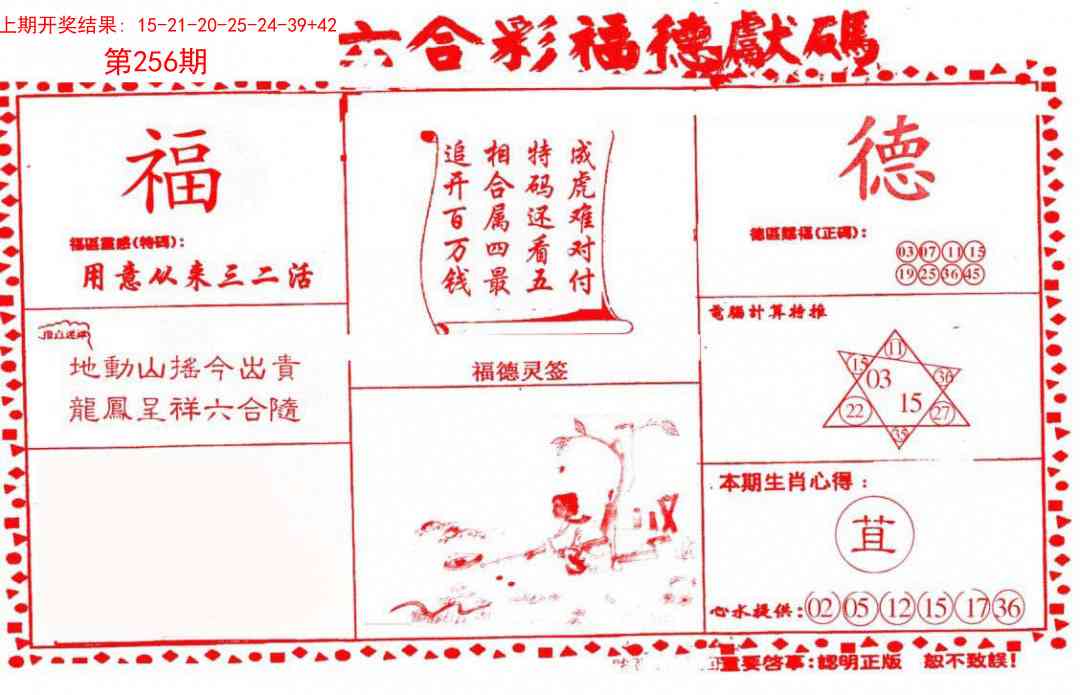 上期开奖结果: 15-21-20-25-24-39+42
第256期
六合彩福德獻碼
福
福區靈感(特碼):
用意从来三二活
地動山搖今出貴
龍鳳呈祥六合隨
成虎难对付
特码还看五
相合属四最
追开百万钱
福德灵签
德
德區賜福(正碼):
03 07 11 15
19 25 36 45
電腦計算特推
11
15 03 36
22 15 27
35
本期生肖心得:
苴
心水提供: 02 05 12 15 17 36
重要啓事:認明正版 恕不致誤!